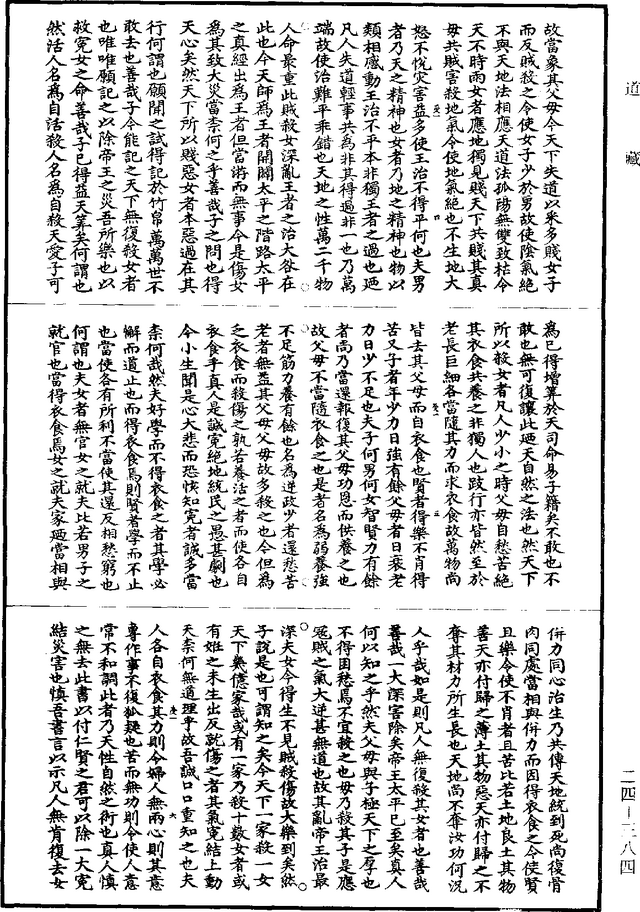 道藏
故當象其父母今天下失道以來多賤女子
而反賊殺之令使女子少於男故使陰氣絕
不與天地法相應天道法孤陽無雙致枯令
天不時雨女者應地獨見賤天下共賤其真
母共賊害殺地氣令使地氣絕也不生地大
怒不悅灾害益多使王治不得平何也夫男
者乃天之精神也女者乃地之精神也物以
類相感動王治不平本非獨王者之過也迺
凡人失道輕事共為非其得過非一也乃萬
端故使治難平乖錯也天地之性萬二千物
人命最重此賊殺女深亂王者之治大咎在
此也今天師為王者開闢太平之階路太平
之真經出為王者但當游而無事今是傷女
為其致大災當柰何之乎善哉子之問也得
天心矣然天下所以賤惡女者本惡過在其
行何謂也願聞之試得記於竹帛萬萬世不
敢去也善哉子今能記之天下無復殺女者
也唯唯願記之以除帝王之災吾所樂也以
救寃女之命善哉子已得益天筭矣何謂也
然活人名為自活殺人名為自殺天愛子可
為已得增筭於天司命易子籍矣不敢也不
敢也無可復讓此迺天自然之法也然天下
所以殺女者凡人少小之時父母自愁苦絕
其衣食共養之非獨人也跂行亦皆然至於
老長巨細各當隨其力而求衣食故萬物尚
皆去其父母而自衣食也賢者得樂不肖得
苦又子者年少力日強有餘父母者日衰老
力日少不足也夫子何男何女智賢力有餘
者尚乃當還報復其父母功恩而供養之也
故父母不當隨衣食之也是老者名為弱養強
不足筋力養有餘也名為逆政少者還愁苦
老者無益其父母父母故多殺之也今但為
之衣食而殺傷之孰若養活之者而使各自
衣食乎真人是誠寃絕地統民之愚甚劇也
今小生聞是心大悲而恐悏知寃者誠多當
柰何哉然夫好學而不得衣食之者其學必
懈而道止也而得衣食焉則賢者學而不止
也當使各有所利不當使其還反相愁窮也
何謂也夫女者無官女之就夫比若男子之
就官也當得衣食焉女之就夫家迺當相與
併力同心治生乃共傳天地統到死尚復骨
肉同處當相與併力而因得衣食之今使賢
且樂令使不肖者且苦比若土地良土其物
善天亦付歸之薄土其物惡天亦付歸之不
奪其材力所生長也天地尚不奪汝功何況
人乎哉如是則凡人無復殺其女者也善哉
善哉一大深害除矣帝王太平已至矣真人
何以知之乎然夫父母與子極天下之厚也
不得困愁焉不宜殺之也母乃殺其子是應
寃賊之氣大逆甚無道也故其亂帝王治最
深夫女今得生不見賊殺傷故大樂到矣然
子說是也可謂知之矣今天下一家殺一女
天下幾億家哉或有一家乃殺十數女者或
有姙之未生出反就傷之者其氣寃結上動
天柰何無道理乎故吾誠□□重知之也夫
人各自衣食其力則令婦人無兩心則其意
專作事不復狐疑也苦而無功則令使人意
常不和調此者乃天性自然之術也真人慎
之無去此書以付仁賢之君可以除一大寃
結災害也慎吾書言以示凡人無肯復去女